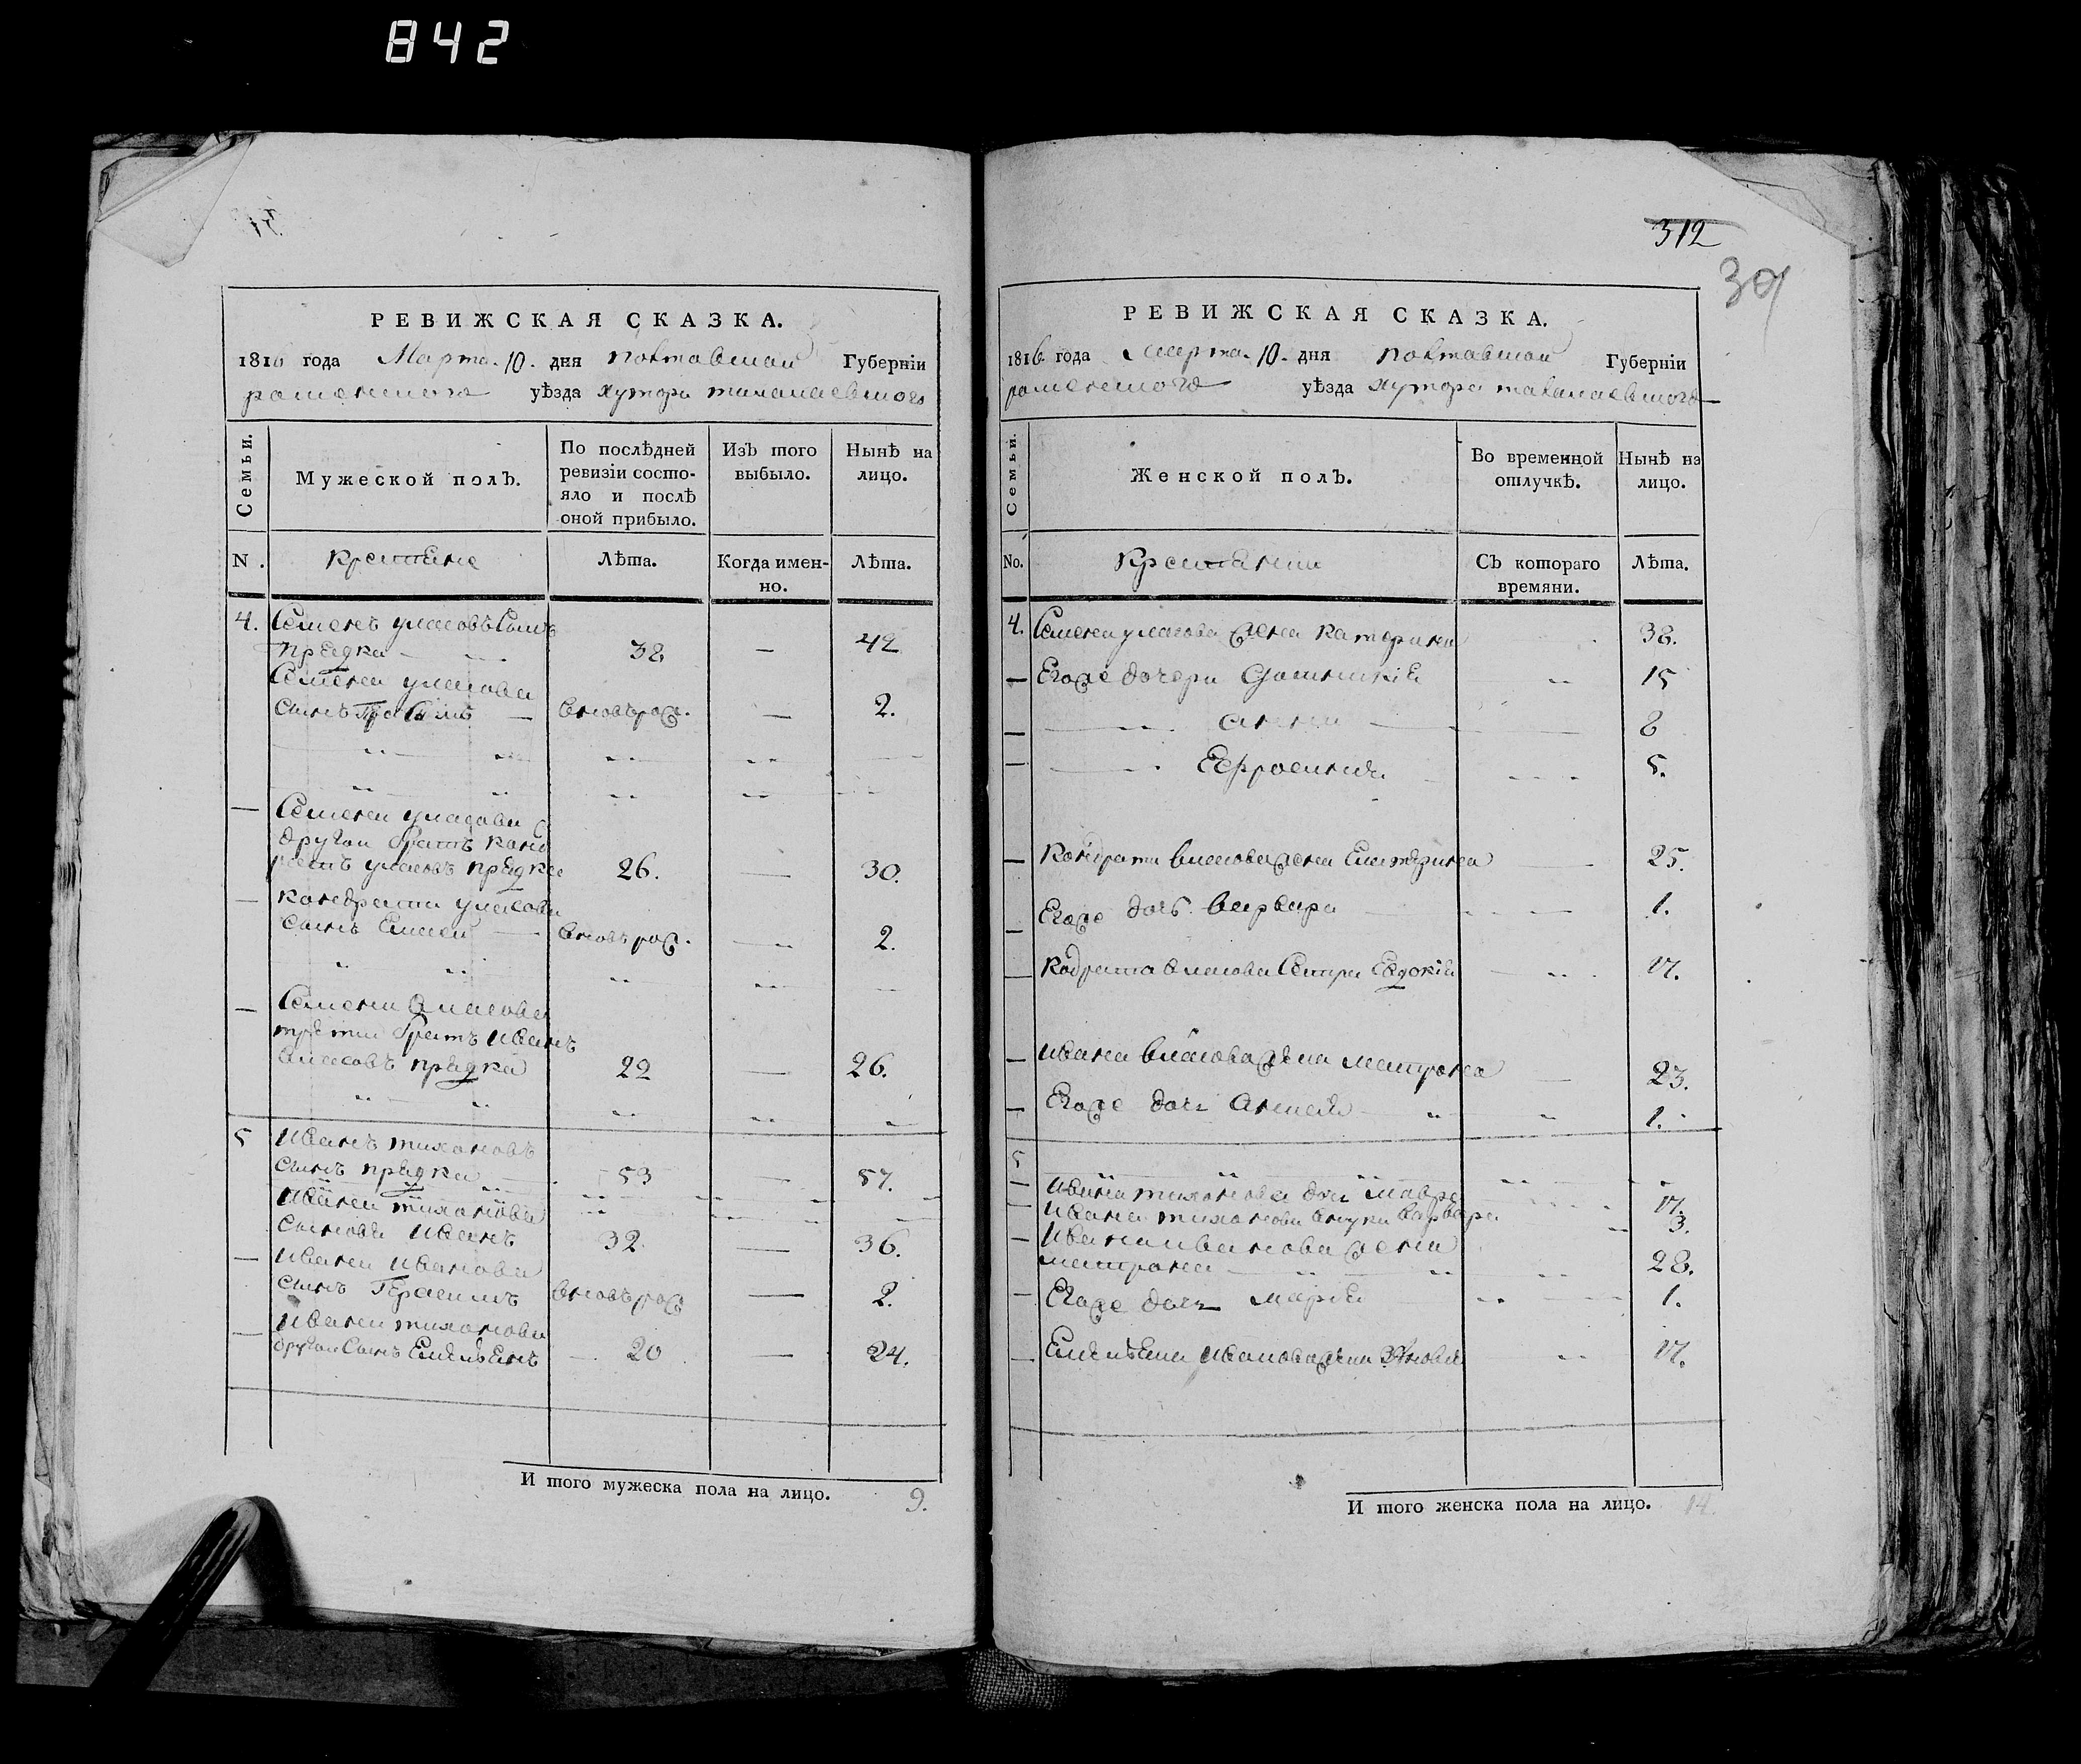 842
312
РЕВИЖСКАЯ СКАЗКА.
1816 года Марта 10. дня Полтавской Губерніи
роменского уѣзда хутора
Семьи.
Мужеской полъ.
По послѣдней ревизіи состо-
яло и послѣ
оной прибыло.
Изъ того
выбыло.
Нынѣ на
лицо.
N.
Лѣта.
Когда имен-
но.
Лѣта.
4. Семенъ уласовъ Сынъ
прядка 38 — 42
Семена уласова
сынъ вновьрож. — 2.
— Семена уласова
другой братъ Конд
ратъ уласовъ прядка 26. — 30.
— Кондрата уласова
сынъ вновьрож. — 2.
— Семена власова
трети братъ Иванъ
власовъ прядка 22 — 26.
5 Иванъ тихоновъ
сынъ прядка 53 — 57.
Ивана тихонова
сыновья Иванъ 32. — 36.
— Ивана Иванова
сынъ Герасимъ вновьрож — 2.
— Ивана тихонова
другой Сынъ Емельянъ 20 — 24.
И того мужеска пола на лицо. 9.
РЕВИЖСКАЯ СКАЗКА.
1816 года Марта 10. дня Полтавской Губерніи
роменского уѣзда хутора
Семьи.
Женской полъ.
Во временной
отлучкѣ.
Нынѣ на
лицо.
No.
Съ котораго
времяни.
Лѣта.
4. Семена уласова жена Катерина 38.
— Егоже дочери 15
— анна 8
— Ефросинія 5.
— Кондрата власова жена Екатерина 25.
— Егоже дочь варвара 1.
— Кодрата власова Сестра Евдокія 17.
— Ивана власова жена матрона 23.
— Егоже дочь 1.
5
— Ивана тихонова дочь мавра 17.
— Ивана тихонова внука варвара 3.
— Ивана иванова жена
матрона 28.
— Егоже дочь марія 1.
— Емельяна Иванова жена 17.
И того женска пола на лицо. 14.